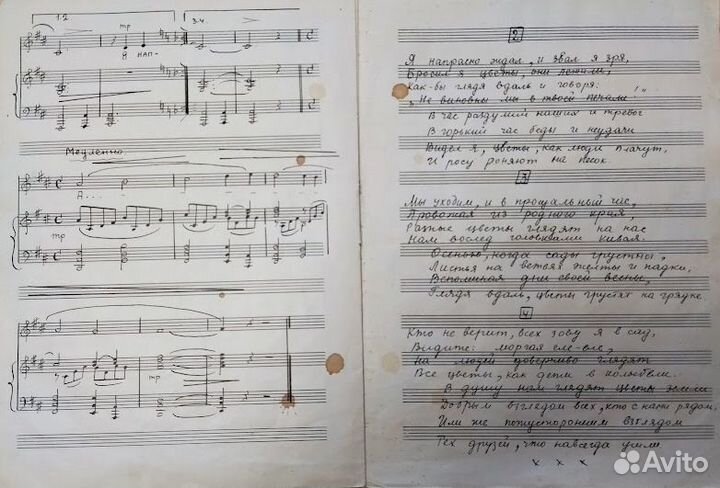 1.2
3.4.
mp
Я НАП-
Медленно
А...
mp
mp
2
Я напрасно ждал, и звал я зря,
Бросил я цветы, они лежали,
Как-бы глядя вдаль и говоря:
„Не виновны мы в твоей печали".
В час раздумий наших и тревог
В горький час беды и неудачи
Видел я, цветы, как люди плачут,
И росу роняют на песок.
3
Мы уходим, и в прощальный час,
Провожая из родного края,
Разные цветы глядят на нас
Нам вослед головками кивая.
Осенью, когда сады грустны,
Листья на ветвях желты и гадки,
Вспоминая дни своей весны,
Глядя вдаль, цветы грустят на грядке.
4
Кто не верит, всех зову я в сад,
Видите: моргая еле-еле,
На людей доверчиво глядят
Все цветы, как дети в колыбели.
В душу нам глядят цветы земли
Добрым взглядом всех, кто с нами рядом.
Или же потусторонним взглядом
Тех друзей, что навсегда ушли
х х х
Avito